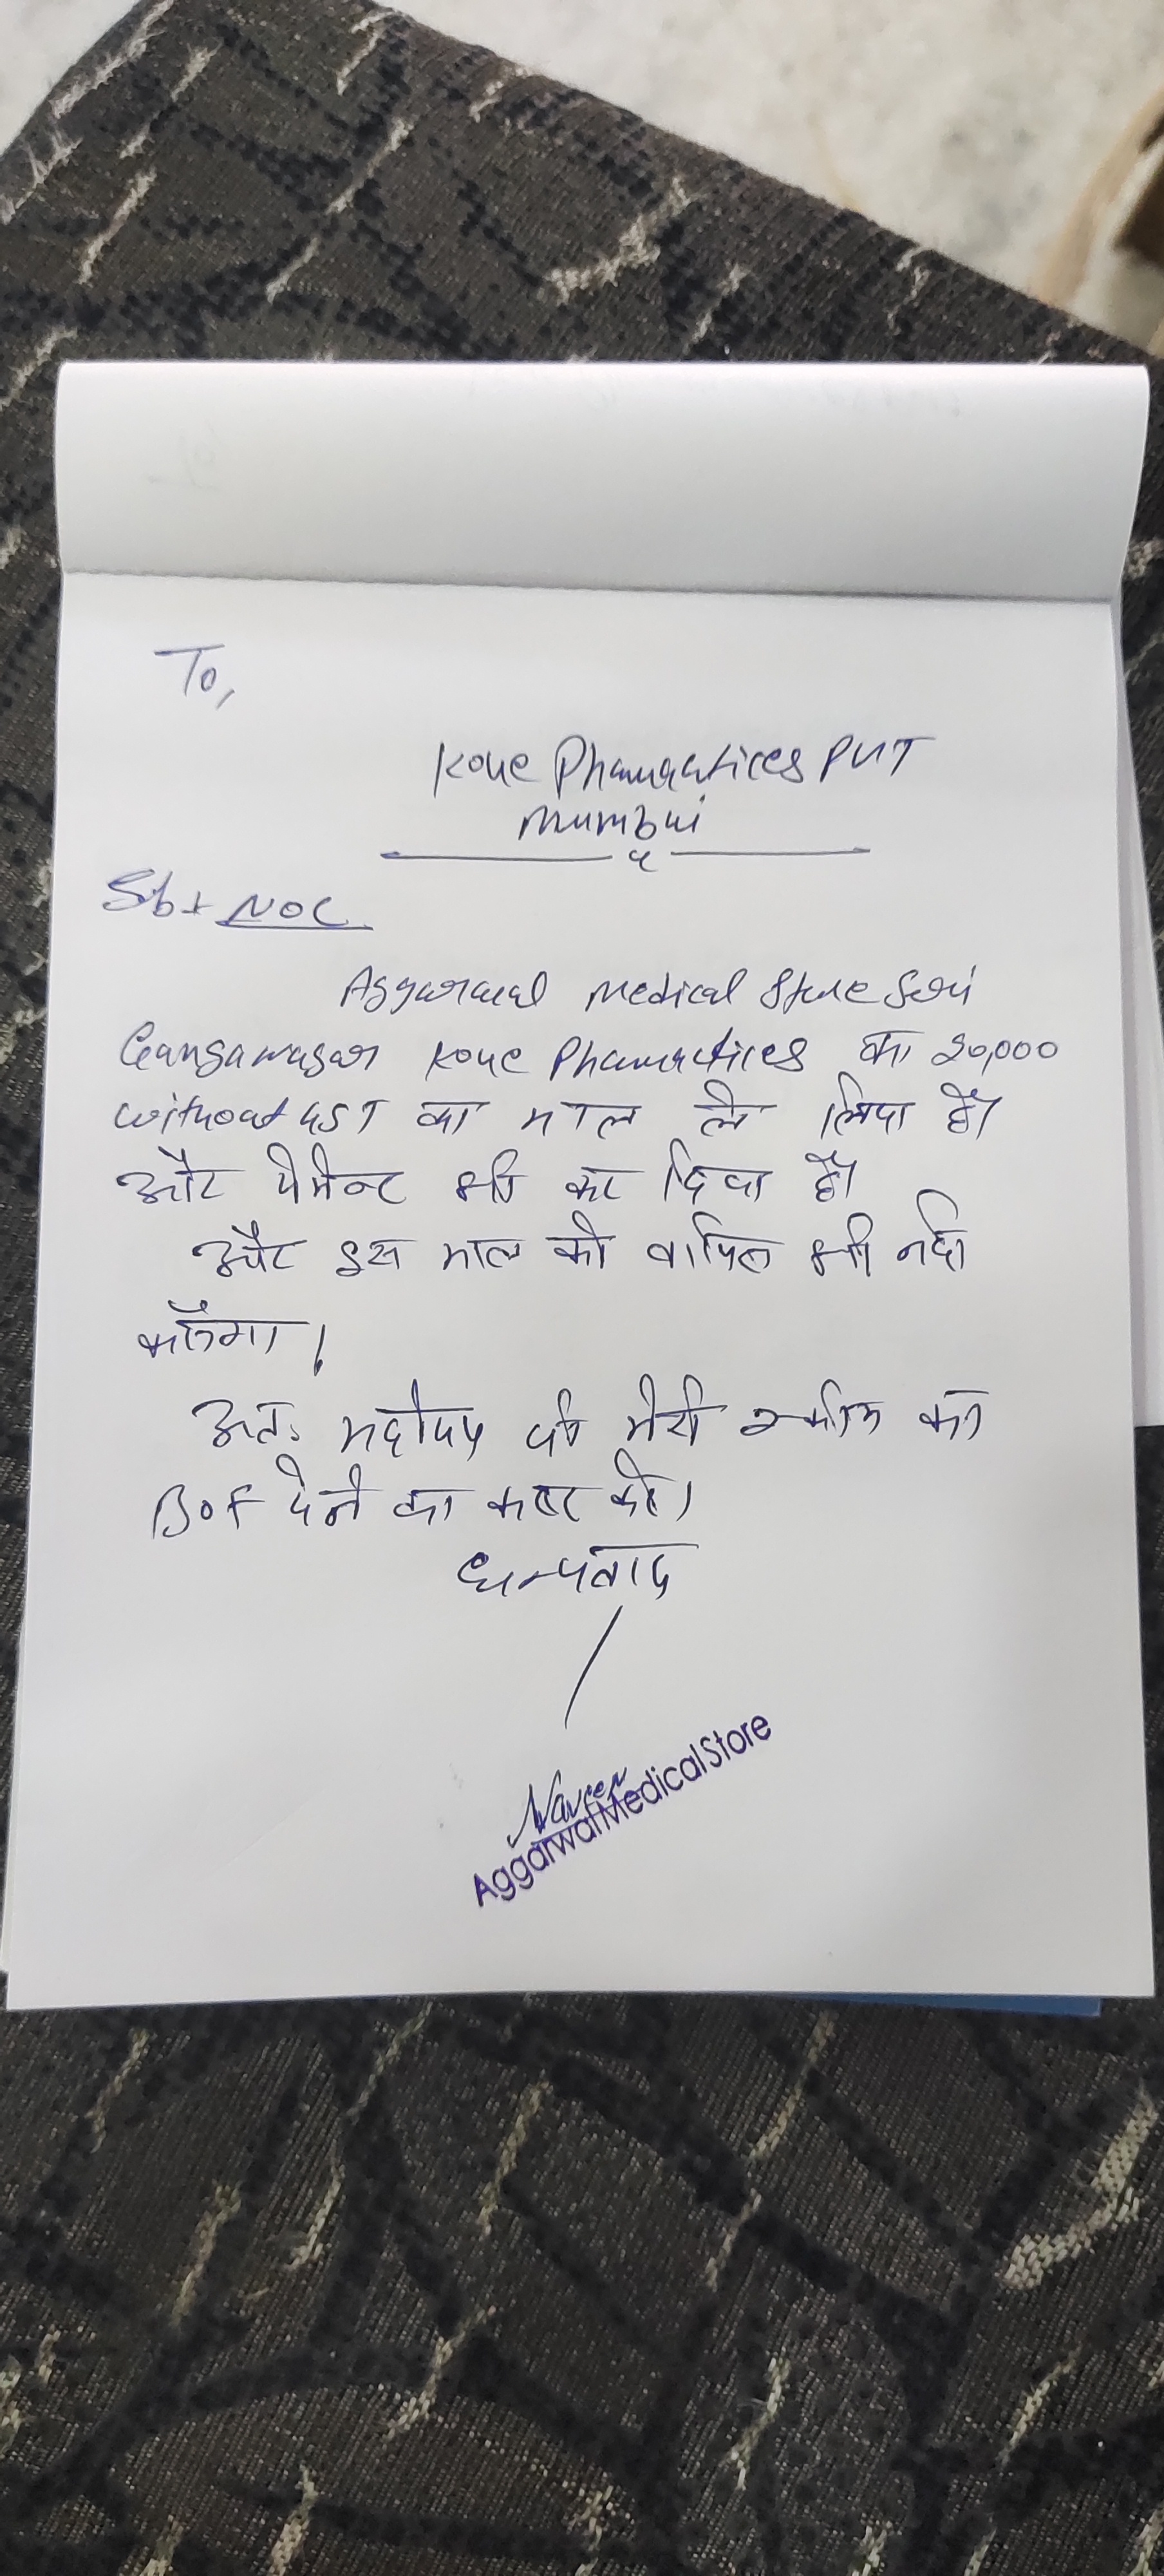 To,
Kove Phamactices PVT
Mumbai
Sb+ NOC
Aggarwal Medical Store Sri
Ganganagar Kove Phamactices का 20,000
without GST का माल ले लिया है।
और पेमेन्ट भी कर दिया है।
और इस माल को वापिस भी नही
करूँगा।
अतः महोदय जी मेरी स्कीम का
देने का कष्ट करे।
धन्यवाद
Naveen
Aggarwal Medical Store